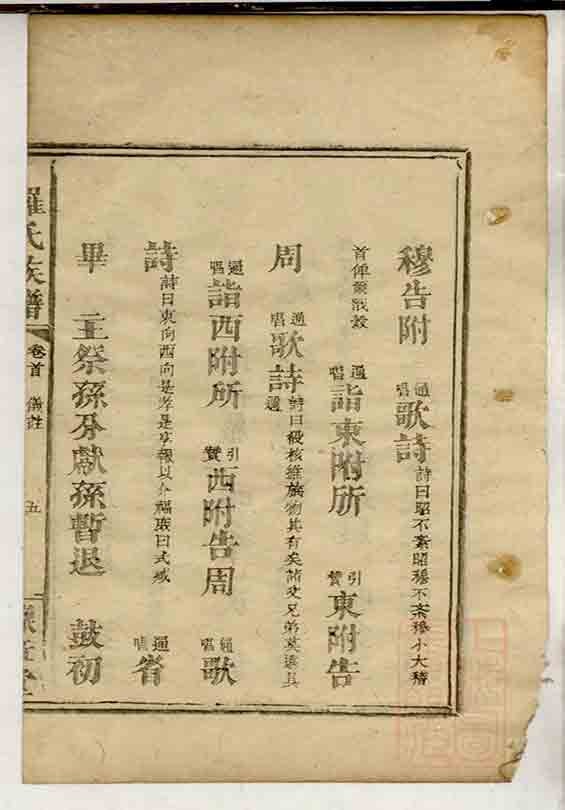 穆告附 通唱 歌詩 詩曰昭不紊昭穆不紊穆小大稽
首俾爾戩穀 通唱 詣東附所 引贊 東附告
周 通唱 歌詩 詩曰殽核維旅物其有矣諸父兄弟莫遠具邇
通唱 詣西附所 引贊 西附告周 通唱 歌
詩 詩曰東向西向是孝是享報以介福取曰式域 通唱 省
畢 主祭孫分獻孫暫退 鼓初
羅氏族譜 卷首 儀註 五